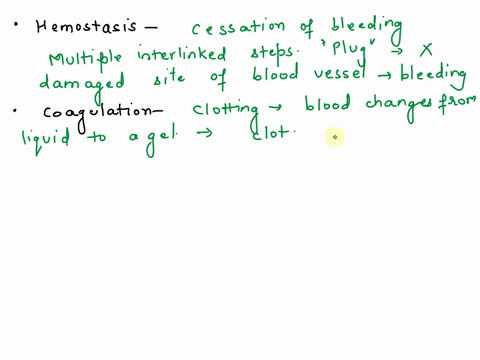 • Hemostasis — cessation of bleeding
Multiple interlinked steps. "Plug" → X
damaged site of blood vessel → bleeding
• Coagulation — clotting → blood changes from
liquid to a gel. → clot.